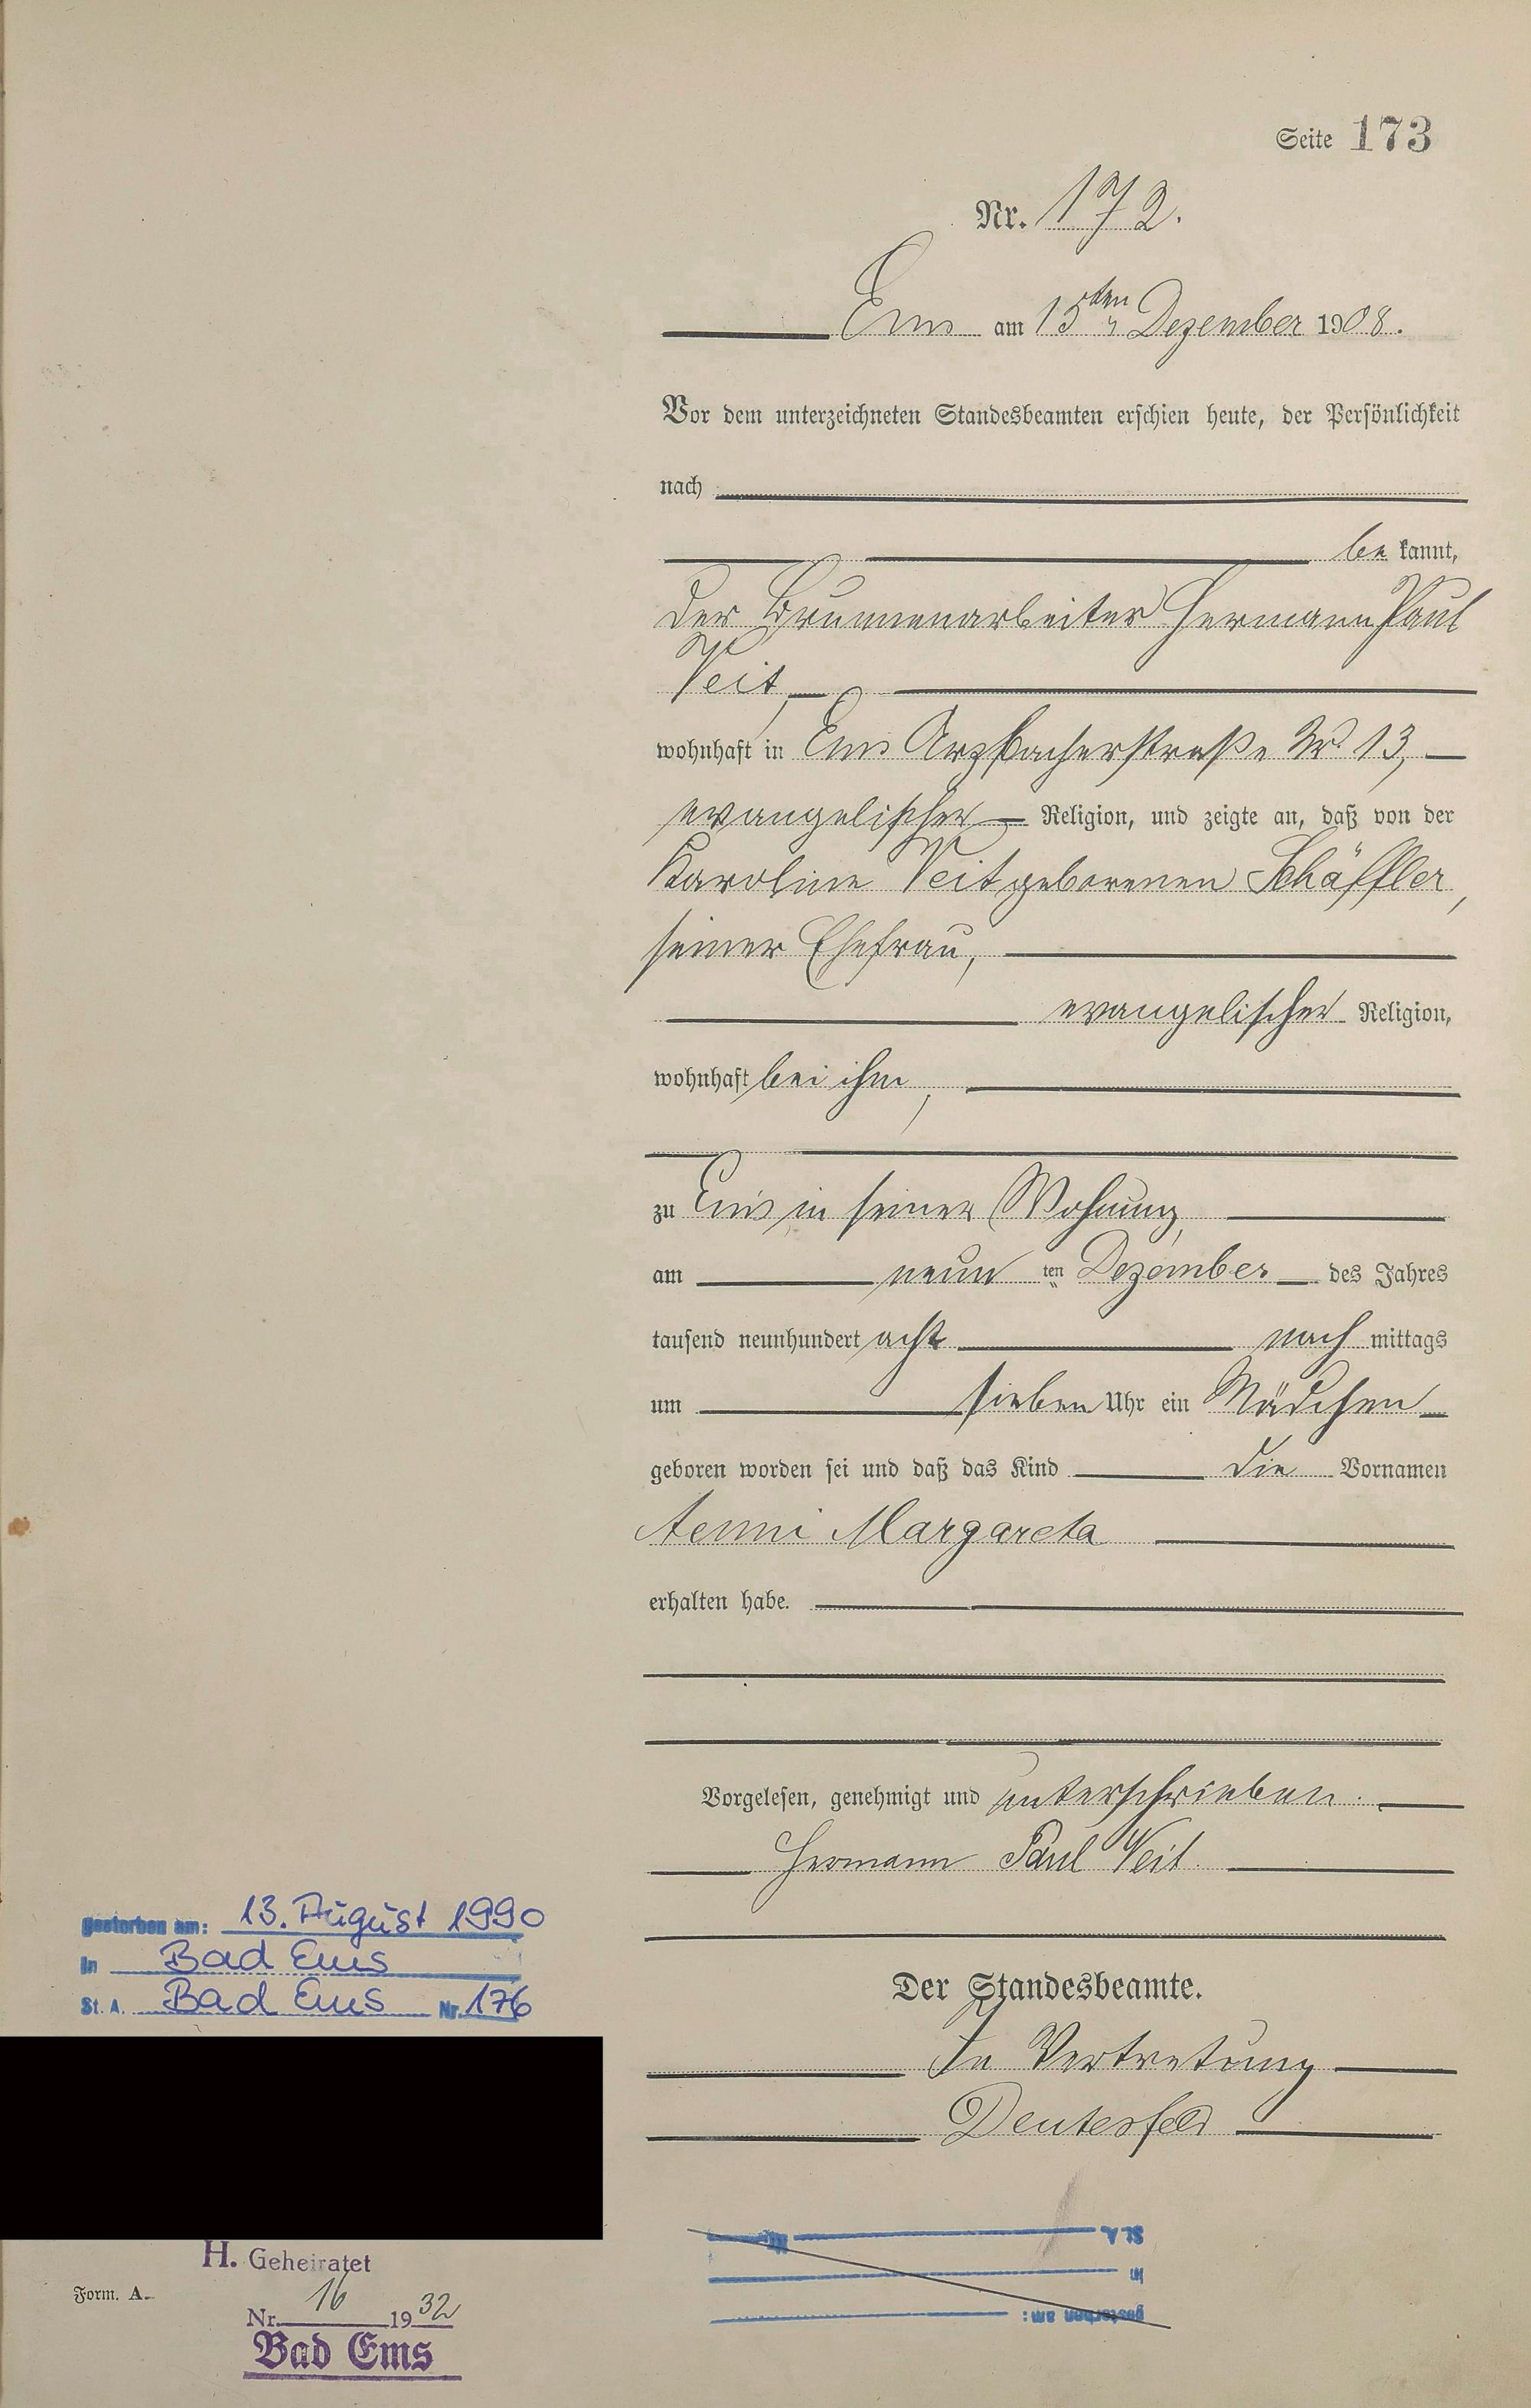 Seite 173
Nr. 172.
Ems am 15ten Dezember 1908.
Vor dem unterzeichneten Standesbeamten erschien heute, der Persönlichkeit
nach
be kannt,
der Brunnenarbeiter Hermann Paul
Veit,
wohnhaft in Ems Arzbacherstraße Nr. 13,
evangelischer Religion, und zeigte an, daß von der
Karoline Veit geborenen Schäffler,
seiner Ehefrau,
evangelischer Religion,
wohnhaft bei ihm,
zu Ems in seiner Wohnung,
am neun ten Dezember des Jahres
tausend neunhundert acht nach mittags
um sieben Uhr ein Mädchen
geboren worden sei und daß das Kind die Vornamen
Aenni Margareta
erhalten habe.
Vorgelesen, genehmigt und unterschrieben.
Hermann Paul Veit
Der Standesbeamte.
In Vertretung
Deutesfeld
gestorben am: 13. August 1990
In Bad Ems
St. A. Bad Ems Nr. 176
H. Geheiratet
Nr. 16 1932
Bad Ems
Form. A.
St. A. Nr.
In
gestorben am: